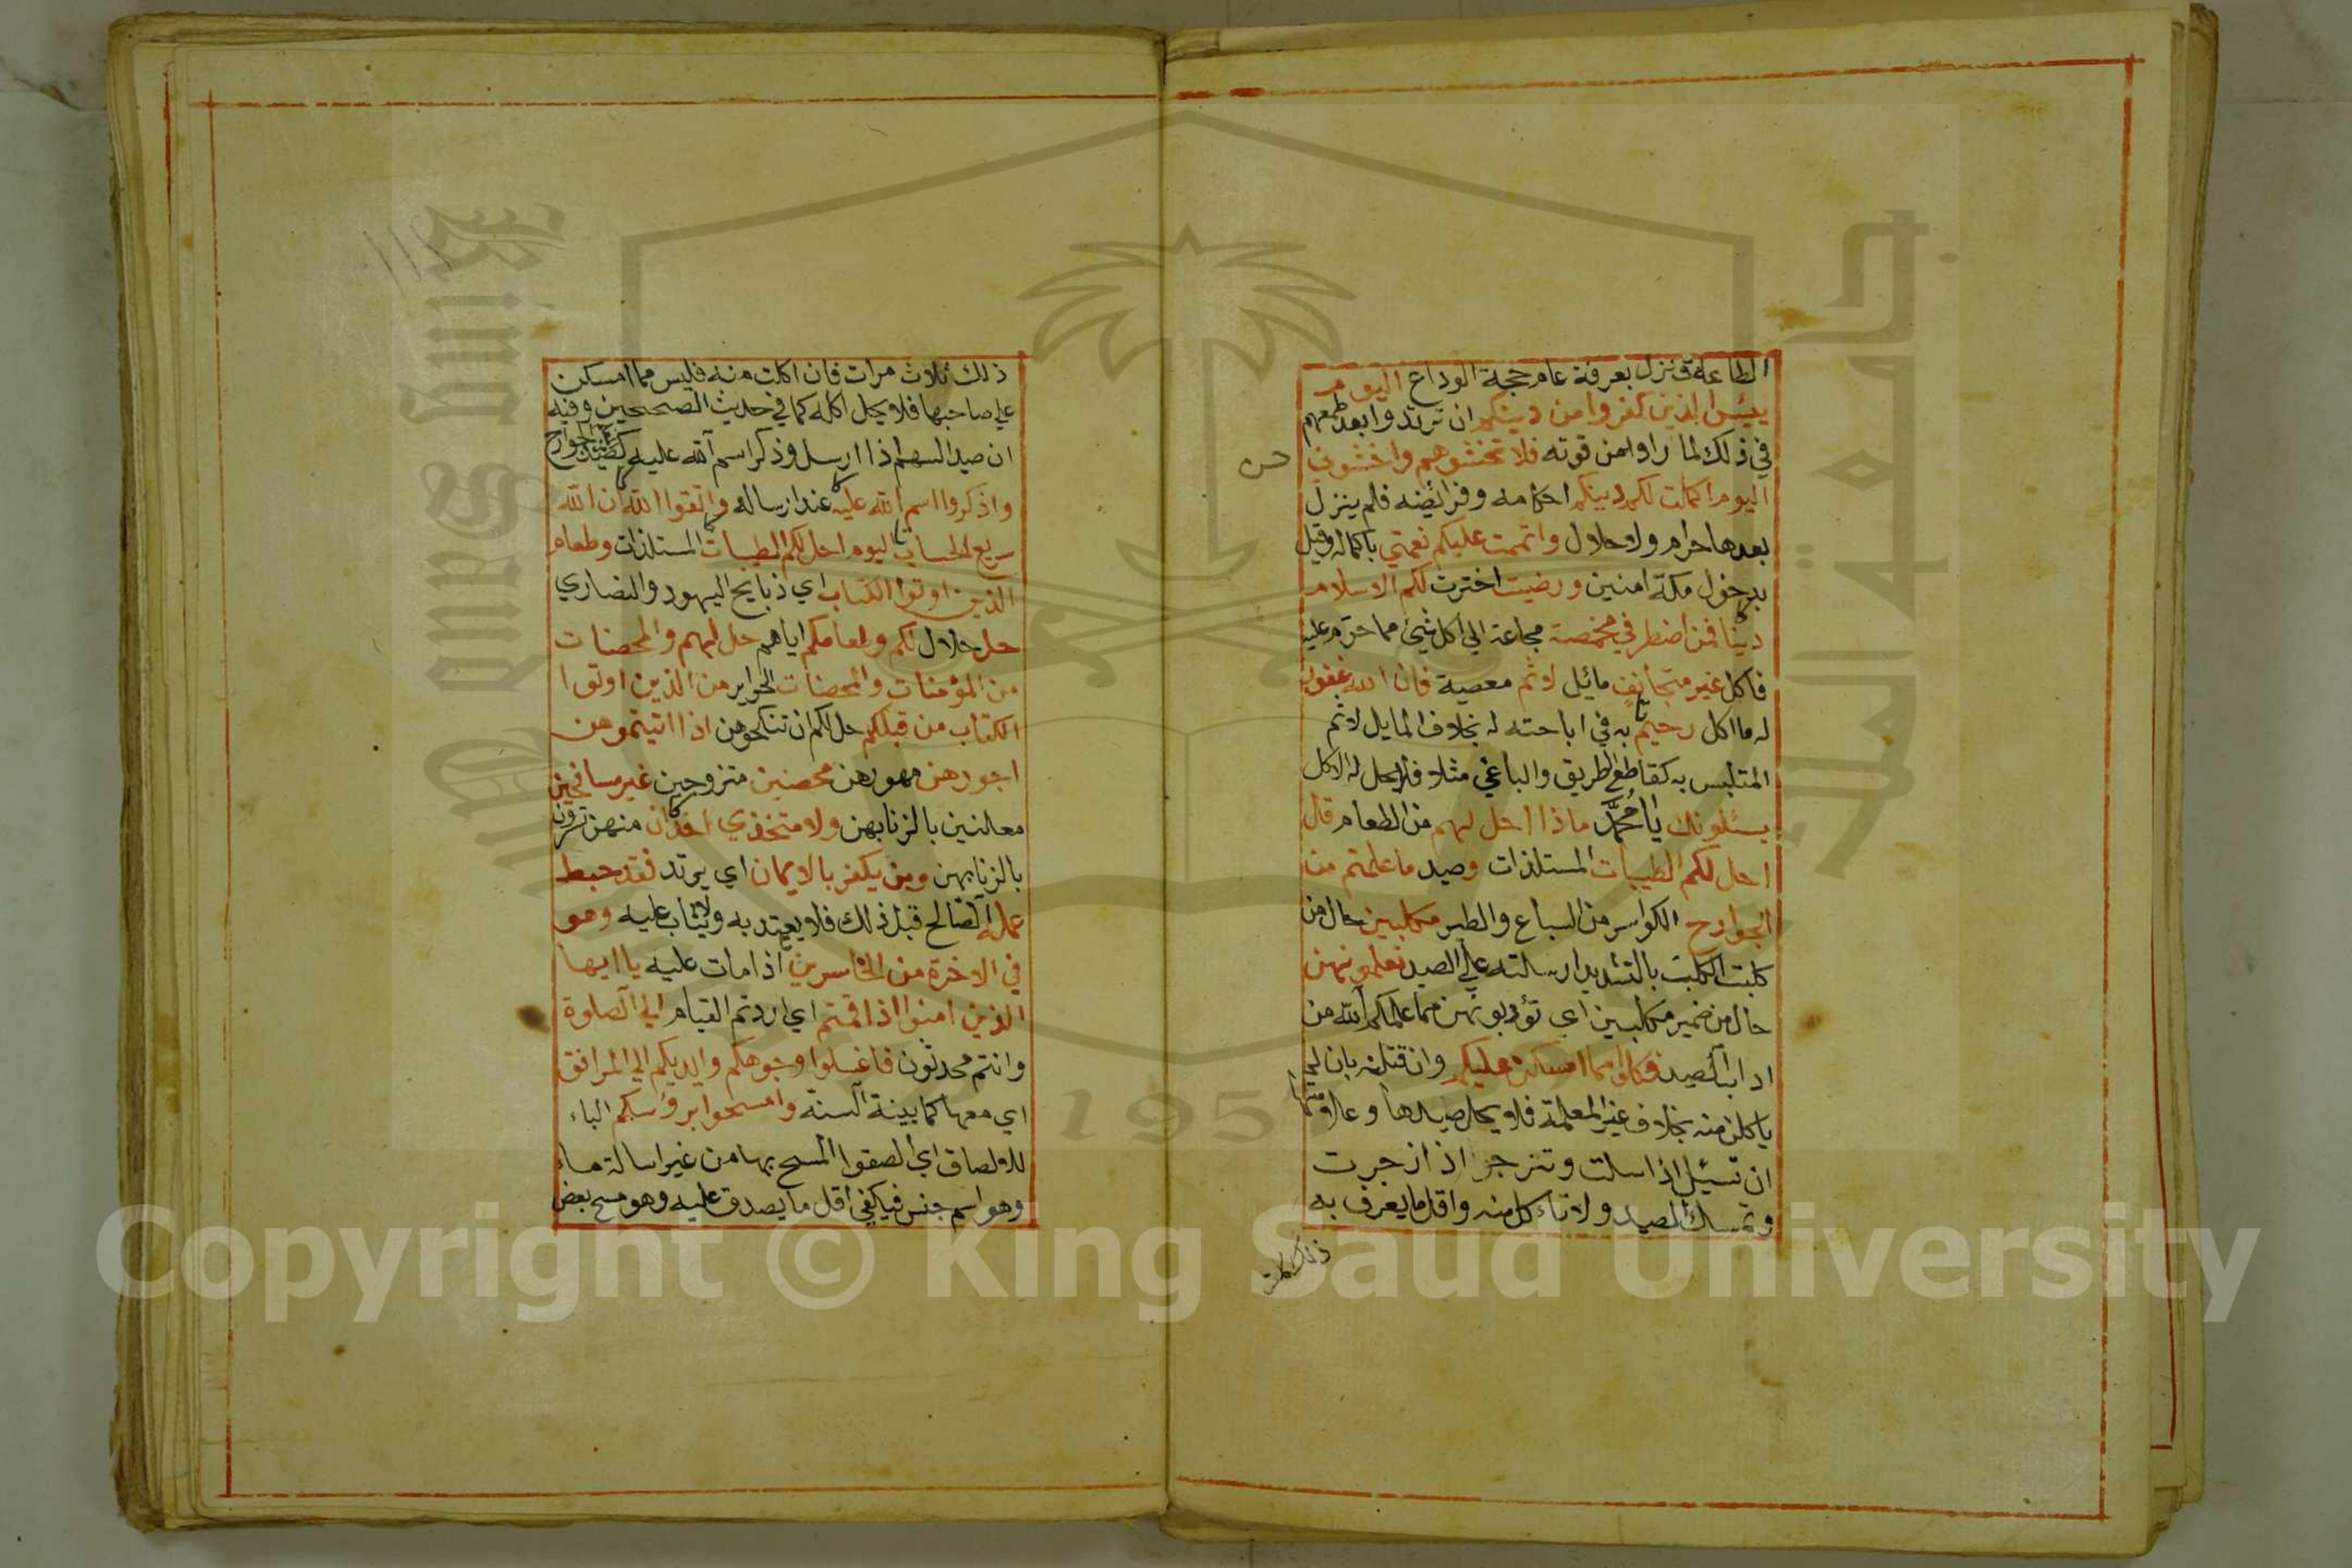 الطاعة ونزل بعرفة عام حجة الوداع اليوم
يئس الذين كفروا من دينكم ان ترتدوا بعد طمعهم
في ذلك لما راوا من قوته فلا تخشوهم واخشوني
اليوم اكملت لكم دينكم احكامه وفرائضه فلم ينزل
بعدها حرام ولا حلال واتممت عليكم نعمتي باكماله وقيل
بدخول مكة امنين ورضيت اخترت لكم الاسلام
دينا فمن اضطر في مخمصة مجاعة الي اكل شيئ مما حرم عليه
فاكل غير متجانف مائيل لاثم معصية فان الله غفور
له ما اكل رحيم به في اباحته له بخلاف المايل لاثم
المتلبس به كقاطع الطريق والباغي مثلا فلا يحل له الاكل
يسئلونك يا محمد ماذا احل لهم من الطعام قل
احل لكم الطيبات المستلذات وصيد ما علمتم من
الجوارح الكواسر من السباع والطير مكلبين حال من
كلبت الكلب بالتشديد ارسلته علي الصيد تعلمونهن
حال من ضمير مكلبين اي تؤدبونهن مما علمكم الله من
اداب الصيد فكلوا مما امسكن عليكم وان قتلنه بان لم
ياكلن منه بخلاف غير المعلمة فلا يحل صيدها وعلامتها
ان تسيل اذا اسلت وتنزجر اذا زجرت
وتمسك الصيد ولا تاكل منه واقل ما يعرف به
ذلك
ذلك ثلاث مرات فان اكلت منه فليس مما امسكن
علي صاحبها فلا يحل اكله كما في حديث الصحيحين وفيه
ان صيد السهم اذا ارسل وذكر اسم الله عليه كصيد الجوارح
واذكروا اسم الله عليه عند ارساله واتقوا الله ان الله
سريع الحساب اليوم احل لكم الطيبات المستلذات وطعام
الذين اوتوا الكتاب اي ذبايح اليهود والنصاري
حل حلال لكم وطعامكم اياهم حل لهم والمحصنات
من المؤمنات والمحصنات الحراير من الذين اوتوا
الكتاب من قبلكم حل لكم ان تنكحوهن اذا اتيتموهن
اجورهن مهورهن محصنين متزوجين غير مسافحين
معلنين بالزنا بهن ولا متخذي اخدان منهن تسرون
بالزنا بهن ومن يكفر بالايمان اي يرتد فقد حبط
عمله الصالح قبل ذلك فلا يعتد به ولا يثاب عليه وهو
في الاخرة من الخاسرين اذا مات عليه يا ايها
الذين امنوا اذا قمتم اي اردتم القيام الي الصلوة
وانتم محدثون فاغسلوا وجوهكم وايديكم الي المرافق
اي معها كما بينة السنة وامسحوا برؤسكم الباء
للالصاق اي الصقوا المسح بها من غير اسالة ماء
وهو اسم جنس فيكفي اقل ما يصدق عليه وهو مسح بعض
Copyright © King Saud University
جامعة الملك
King Saud
195